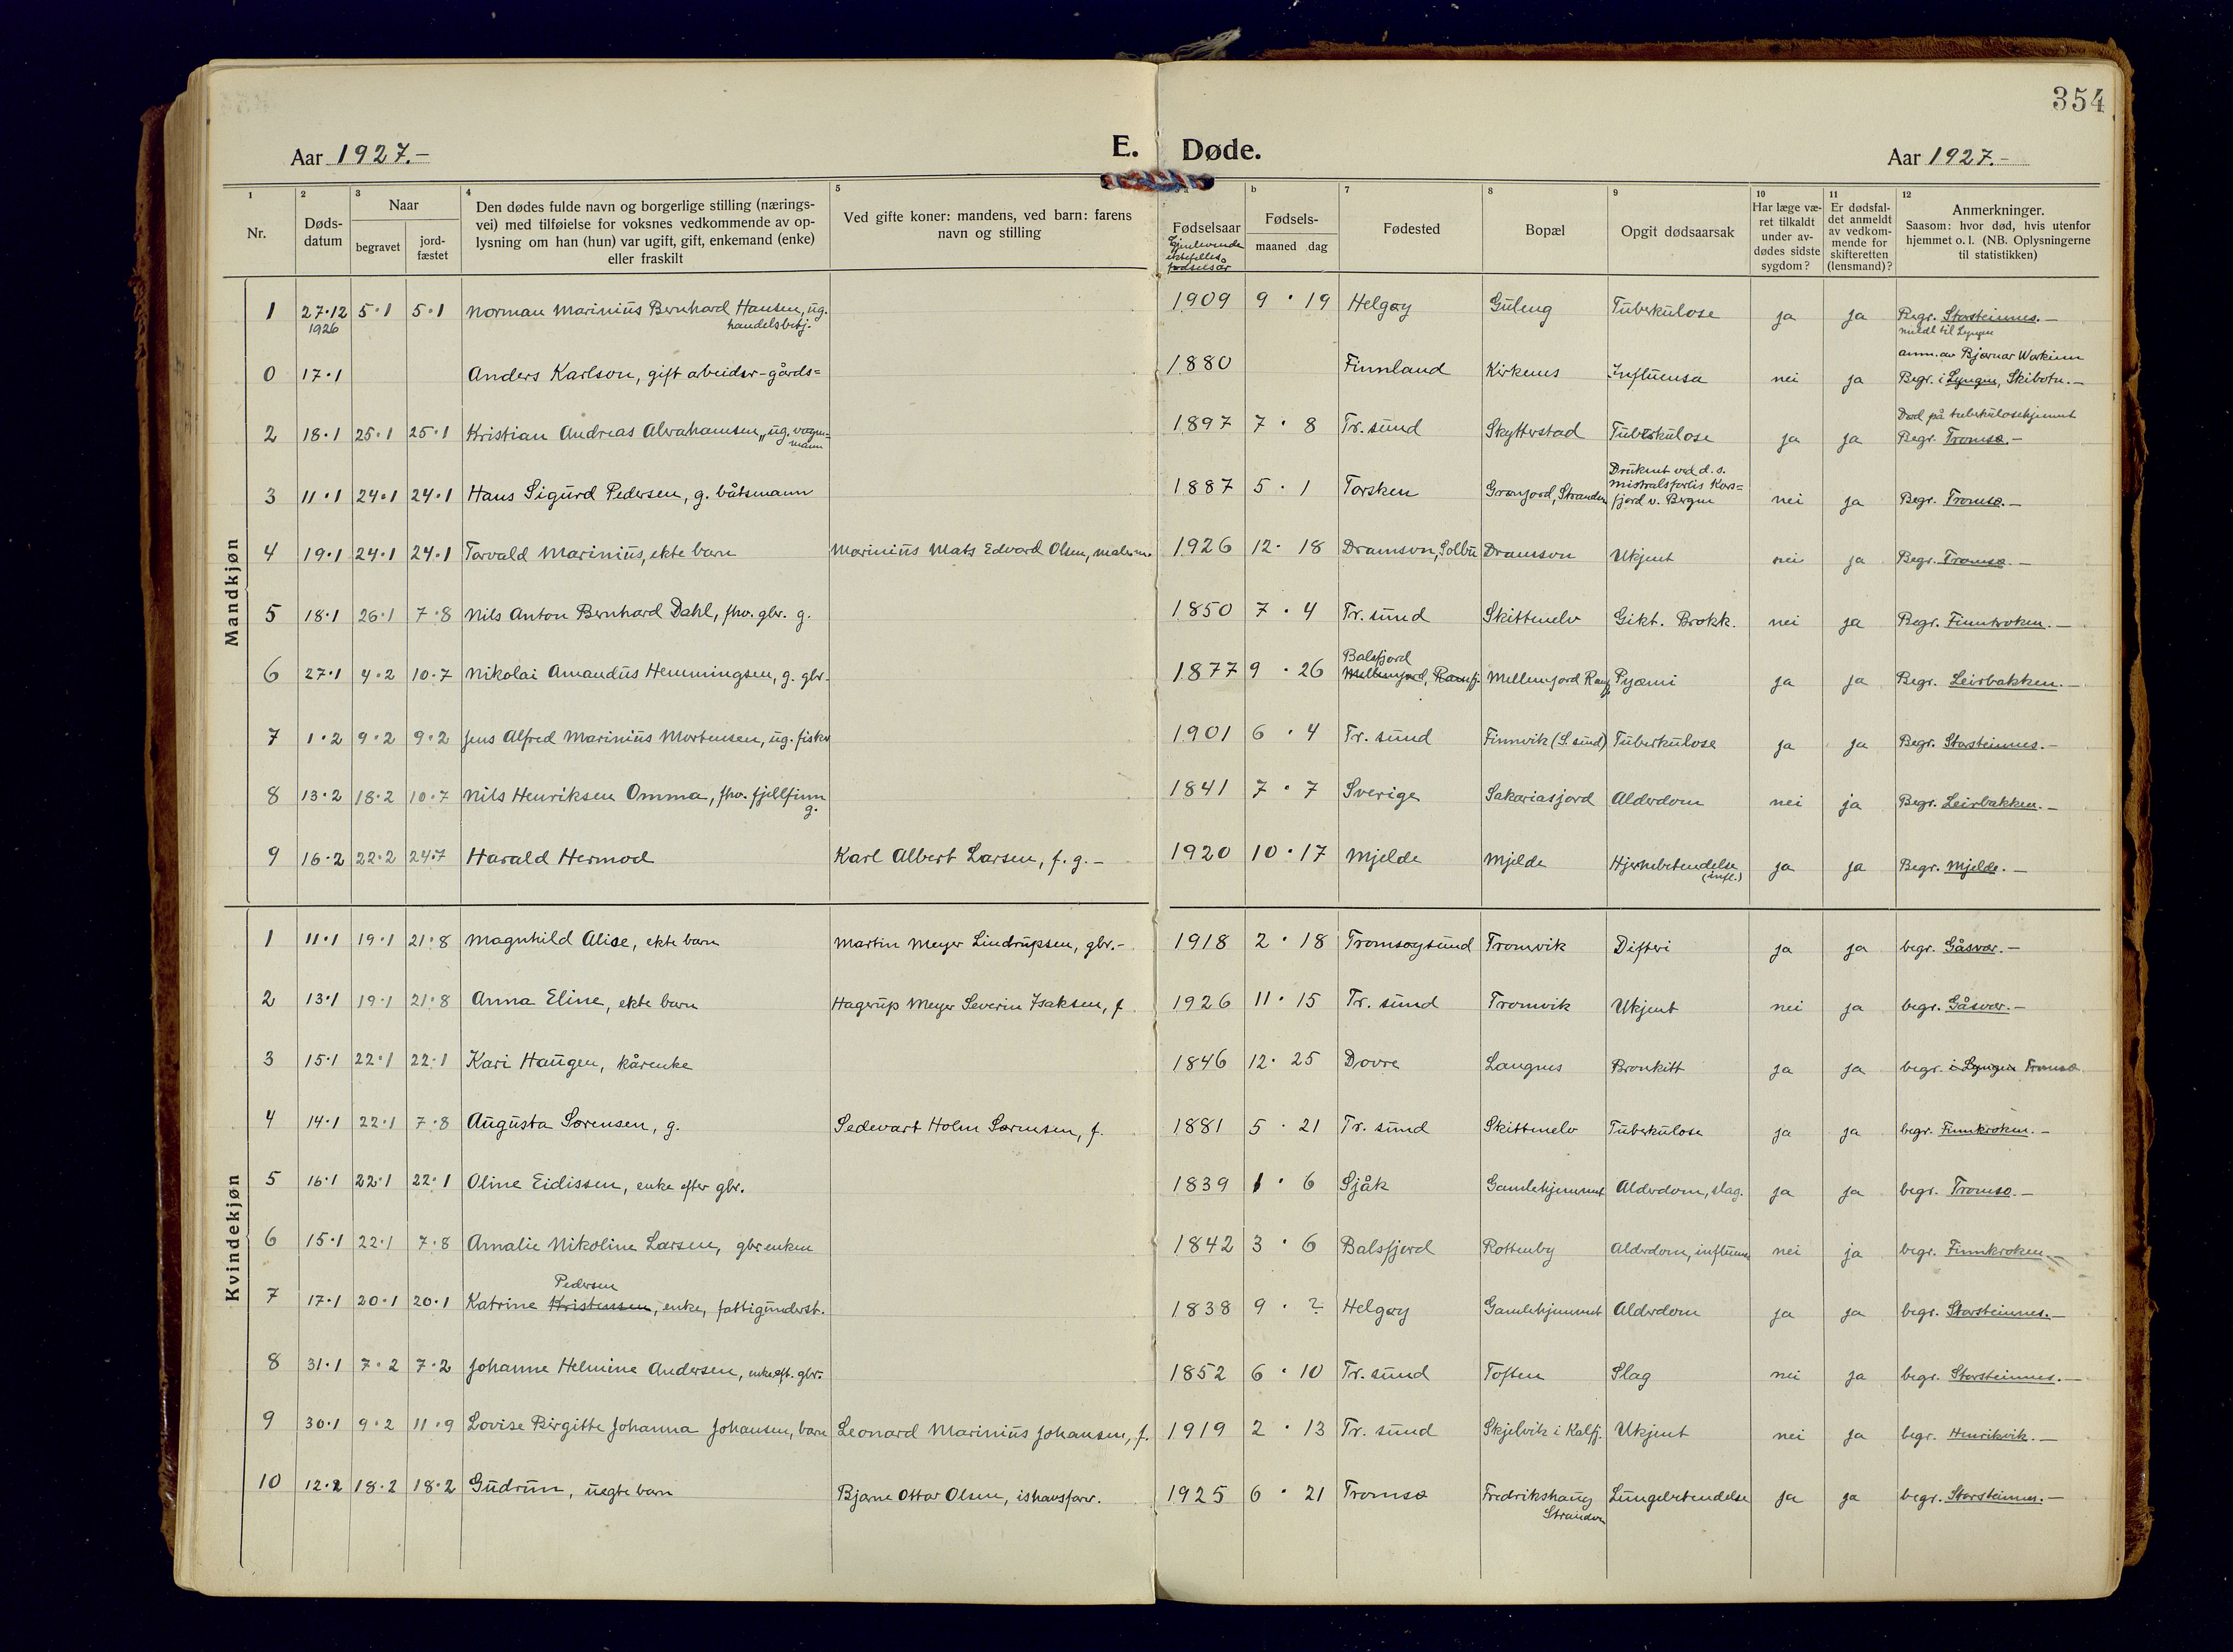 354
Aar 1927.-
E. Døde.
Aar 1927.-
1 Nr.
2 Døds-datum
3 Naar begravet jord-fæstet
4 Den dødes fulde navn og borgerlige stilling (nærings-
vei) med tilføielse for voksnes vedkommende av op-
lysning om han (hun) var ugift, gift, enkemand (enke)
eller fraskilt
5 Ved gifte koner: mandens, ved barn: farens
navn og stilling
Fødselsaar Gjenlevende ektefelles fødselsår
b Fødsels- maaned dag
7 Fødested
8 Bopæl
9 Opgit dødsaarsak
10 Har læge væ-
ret tilkaldt
under av-
dødes sidste
sygdom?
11 Er dødsfal-
det anmeldt
av vedkom-
mende for
skifteretten
(lensmand)?
12 Anmerkninger.
Saasom: hvor død, hvis utenfor
hjemmet o. l. (NB. Oplysningerne
til statistikken)
Mandkjøn
1 27·12 1926 5·1 5·1 Norman Marinius Bernhard Hansen, ug. handelsbetj. 1909 9 · 19 Helgøy Guleng Tuberkulose ja ja Begr. Storsteinnes.-
meldt til Lyngen
anm. av Bjarnar Workinn
0 17·1 Anders Karlson, gift arbeider-gårds= 1880 Finnland Kirkenes Influensa nei ja Begr. i Lyngen, Skibotn.-
Død på tuberkulosehjemmet
2 18·1 25·1 25·1 Kristian Andreas Abrahamsen, ug. vogn=mann 1897 7 · 8 Tr. sund Skytterstad Tuberkulose ja ja Begr. Tromsø.-
3 11·1 24·1 24·1 Hans Sigurd Pedersen, g. båtsmann 1887 5 · 1 Torsken Grønjord, Stranden Druknet ved d.s. mistralsforlis Kors=fjord v. Bergen nei ja Begr. Tromsø.-
4 19·1 24·1 24·1 Torvald Marinius, ekte barn Marinius Mats Edvard Olsen, 1926 12 · 18 Dramson, Solbu Dramson Ukjent nei ja Begr. Tromsø.-
5 18·1 26·1 7·8 Nils Anton Bernhard Dahl, fhv. gbr. g. 1850 7 · 4 Tr. sund Skittenelv Gikt. Brokk. nei ja Begr. Finnkroken.-
6 27·1 4·2 10·7 Nikolai Amandus Hemmingsen, g. gbr. 1877 9 · 26 Balsfjord Mellemjord, Ramfj. Mellemjord Ramfj Pyæmi ja ja Begr. Leirbakken.-
7 1·2 9·2 9·2 Jens Alfred Marinius Mortensen, ug. fisker 1901 6 · 4 Tr. sund Finnvik (S. sund) Tuberkulose ja ja Begr. Storsteinnes.-
8 13·2 18·2 10·7 Nils Henriksen Omma, fhv. fjellfinn g. 1841 7 · 7 Sverige Sakariasjord Alderdom nei ja Begr. Leirbakken.-
9 16·2 22·2 24·7 Harald Hermod Karl Albert Larsen, f. g.- 1920 10 · 17 Mjelde Mjelde Hjernebetendelse (infl.) ja ja Begr. Mjelde.-
Kvindekjøn
1 11·1 19·1 21·8 Magnhild Alise, ekte barn Martin Meyer Lindrupsen, gbr.- 1918 2 · 18 Tromsøysund Tromvik Difteri ja ja begr. Gåsvær.-
2 13·1 19·1 21·8 Anna Eline, ekte barn Hagerup Meyer Severin Isaksen, f 1926 11 · 15 Tr. sund Tromvik Ukjent nei ja begr. Gåsvær.-
3 15·1 22·1 22·1 Kari Haugen, kårenke 1846 12 · 25 Dovre Langnes Bronkitt ja ja begr. i Lyngen Tromsø
4 14·1 22·1 7·8 Augusta Sørensen, g. Sedevart Holm Sørensen, f. 1881 5 · 21 Tr. sund Skittenelv Tuberkulose ja ja begr. Finnkroken.-
5 16·1 22·1 22·1 Oline Eidissen, enke efter gbr. 1839 1 · 6 Sjåk Gamlehjemmet Alderdom, slag. ja ja begr. Tromsø.-
6 15·1 22·1 7·8 Amalie Nikoline Larsen, gbrenken 1842 3 · 6 Balsfjord Rottenby Alderdom, influensa nei ja begr. Finnkroken.-
7 17·1 20·1 20·1 Katrine Kristensen Pedersen, enke, fattigunderst. 1838 9 · ? Helgøy Gamlehjemmet Alderdom ja ja begr. Storsteinnes.-
8 31·1 7·2 7·2 Johanne Helmine Andersen, enke eft. gbr. 1852 6 · 10 Tr. sund Toften Slag nei ja begr. Storsteinnes.-
9 30·1 9·2 11·9 Lovise Birgitte Johanna Johansen, barn Leonard Marinius Johansen, f. 1919 2 · 13 Tr. sund Skjelvik i Kalfj. Ukjent nei ja begr. Henrikvik.-
10 12·2 18·2 18·2 Gudrun, uegte barn Bjarne Ottar Olsen, ishavsfarer. 1925 6 · 21 Tromsø Fredrikshaug Stranden Lungebetendelse ja ja begr. Storsteinnes.-